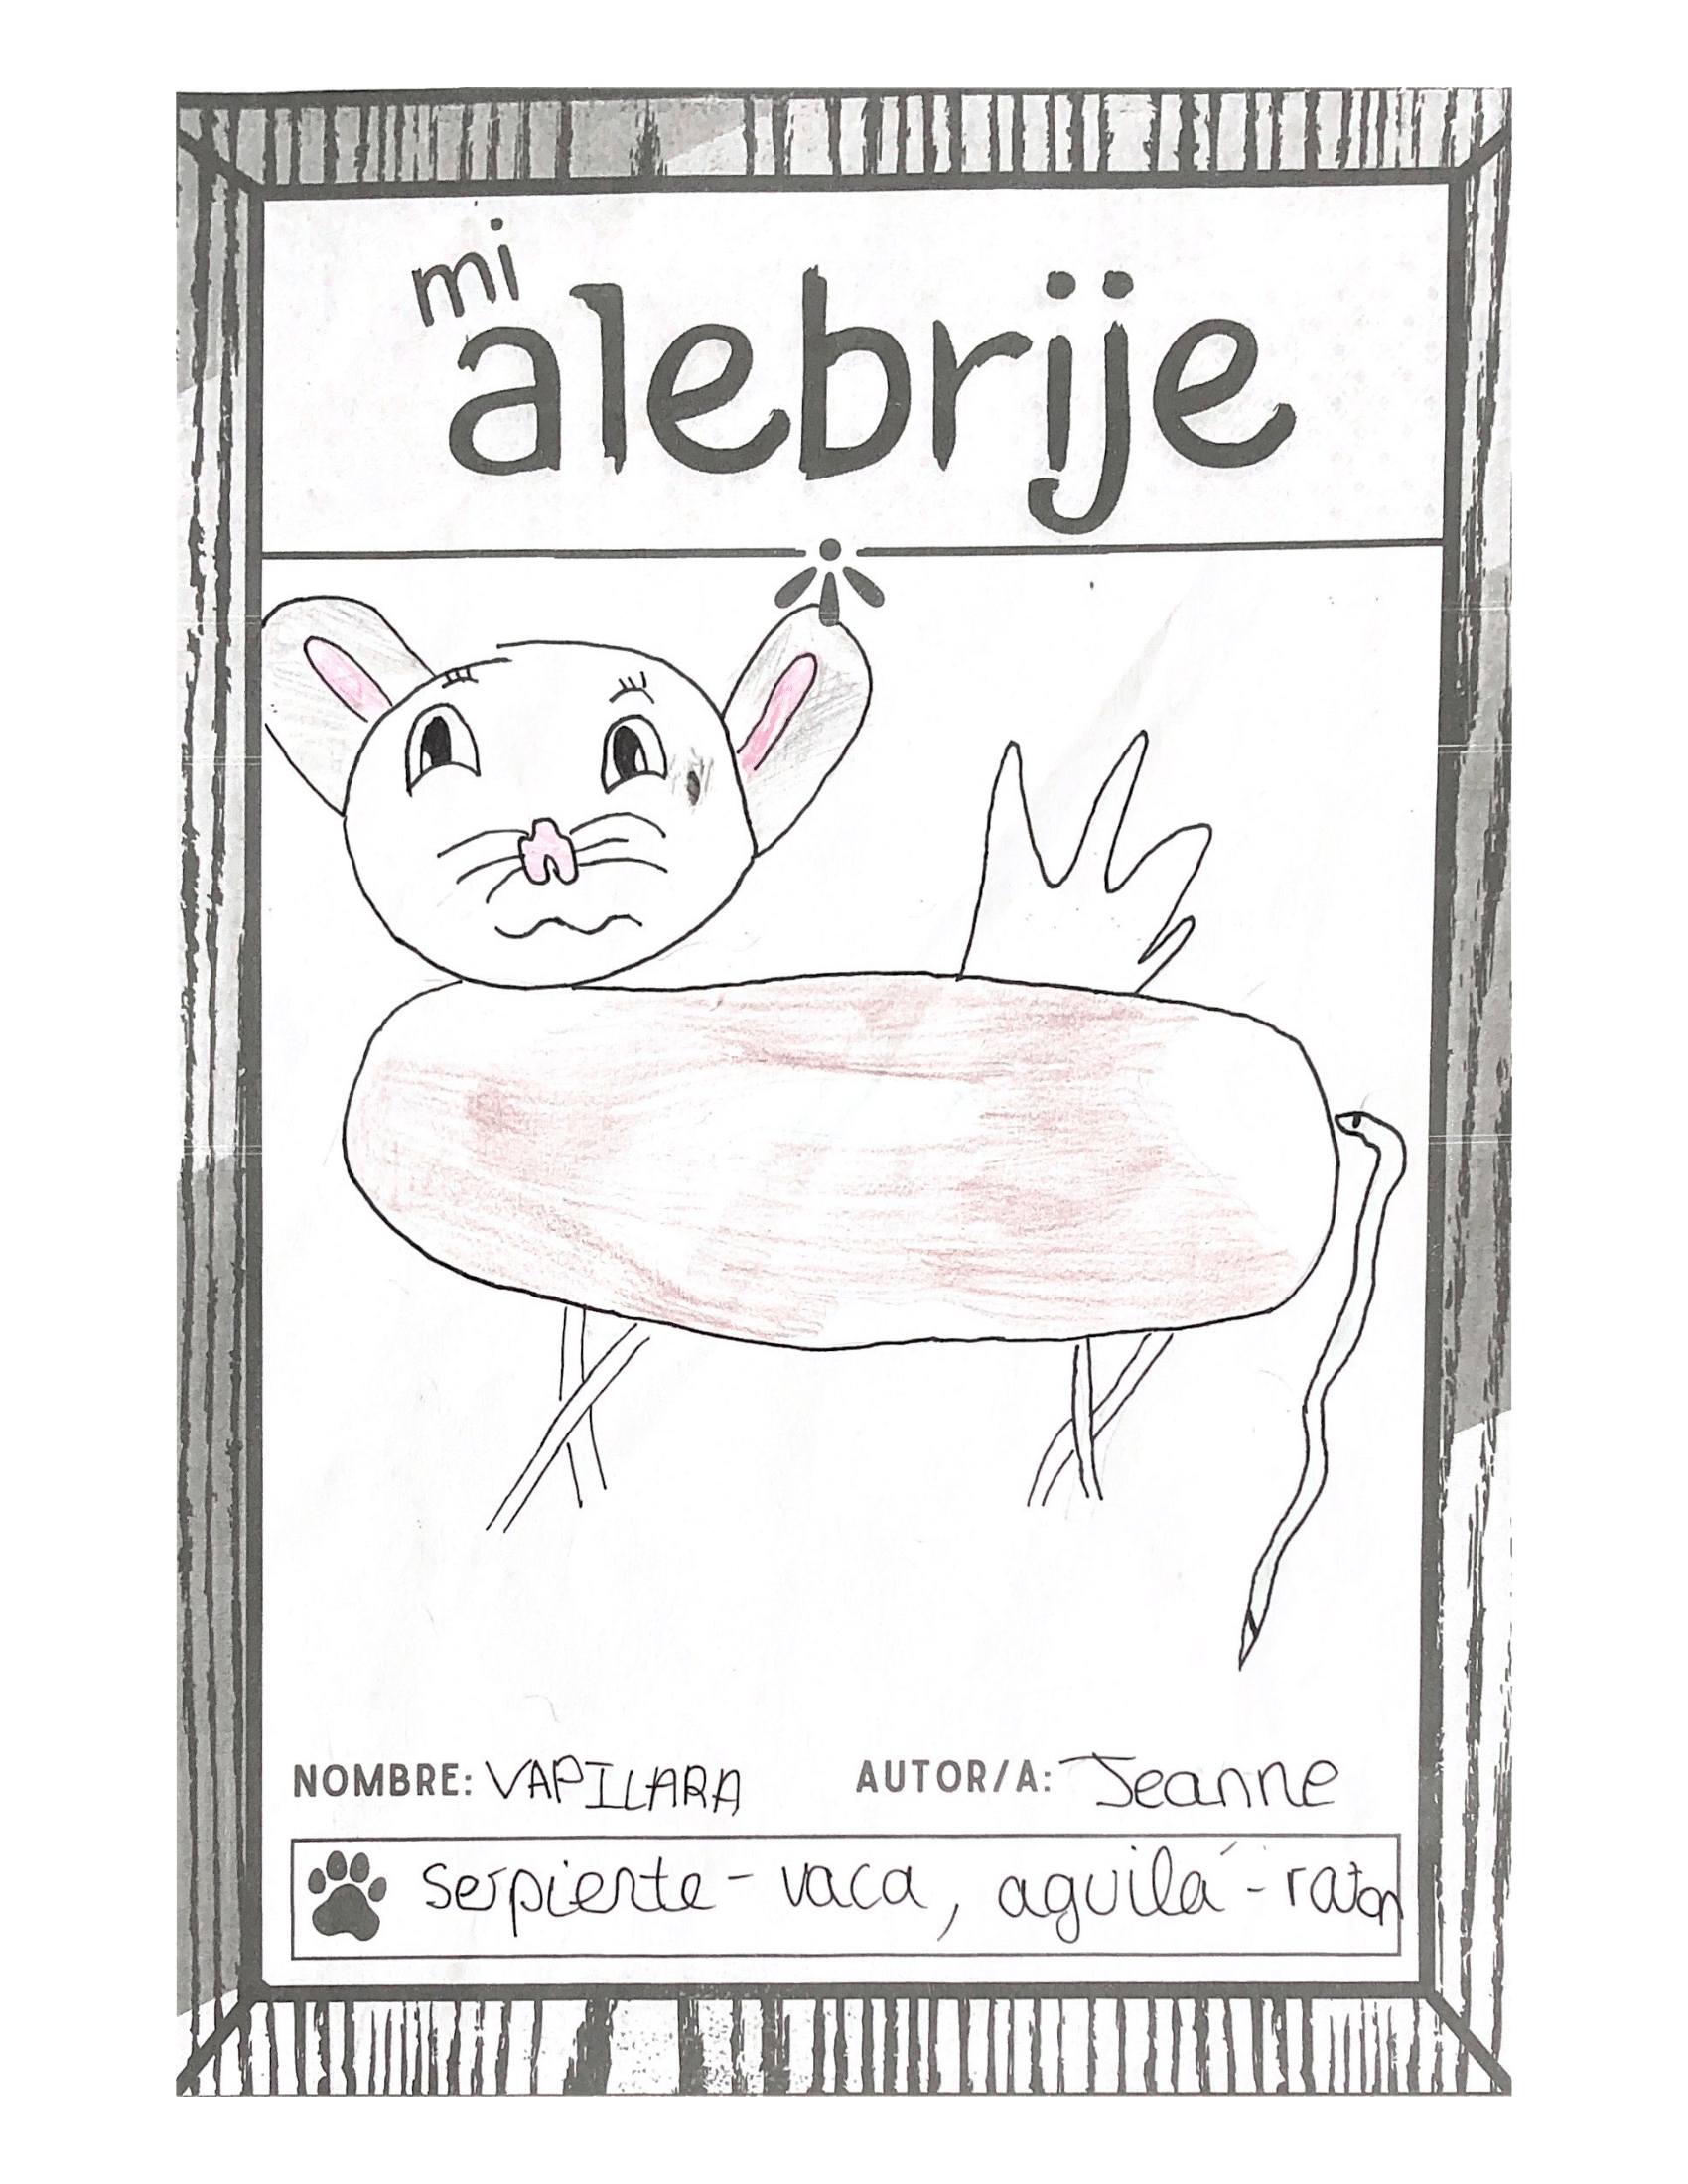 mi
alebrije
NOMBRE: VAPILARA AUTOR/A: Jeanne
serpiente - vaca, aguilá - raton